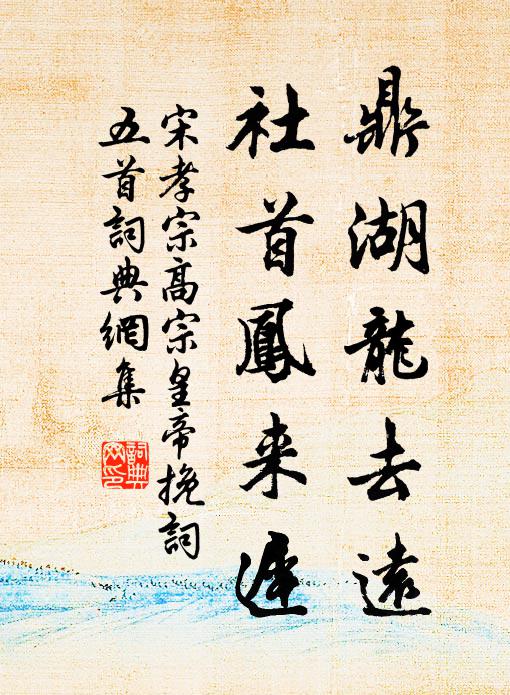 鼎湖龍去遠
社首鳳来遲
宋孝宗高宗皇帝挽詞
五首詞典網集
詞典網印